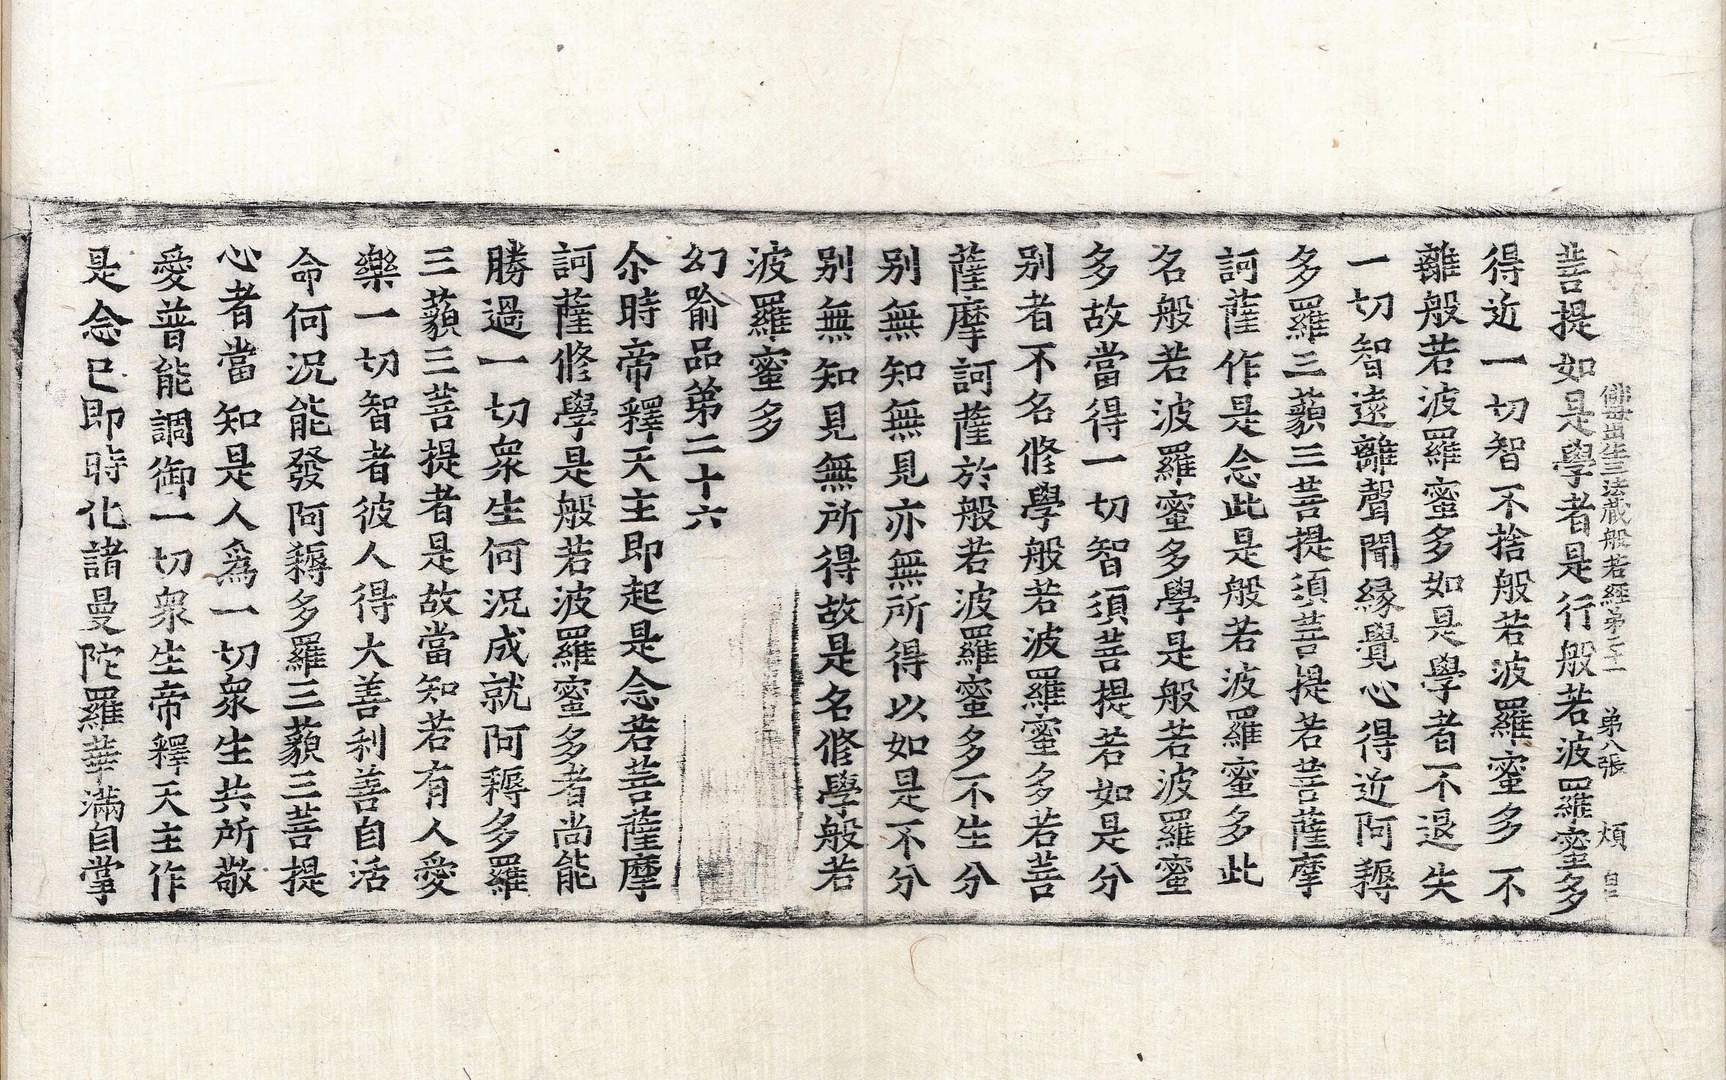 佛母出生三法藏般若經第二十 第八張 煩
菩提如是學者是行般若波羅蜜多
得近一切智不捨般若波羅蜜多不
離般若波羅蜜多如是學者不退失
一切智遠離聲聞緣覺心得近阿耨
多羅三藐三菩提須菩提若菩薩摩
訶薩作是念此是般若波羅蜜多此
名般若波羅蜜多學是般若波羅蜜
多故當得一切智須菩提若如是分
別者不名修學般若波羅蜜多若菩
薩摩訶薩於般若波羅蜜多不生分
別無知無見亦無所得以如是不分
別無知見無所得故是名修學般若
波羅蜜多
幻喻品第二十六
尒時帝釋天主即起是念若菩薩摩
訶薩修學是般若波羅蜜多者尚能
勝過一切衆生何況成就阿耨多羅
三藐三菩提者是故當知若有人愛
樂一切智者彼人得大善利善自活
命何況能發阿耨多羅三藐三菩提
心者當知是人爲一切衆生共所敬
愛普能調御一切衆生帝釋天主作
是念已即時化諸曼陀羅華滿自掌